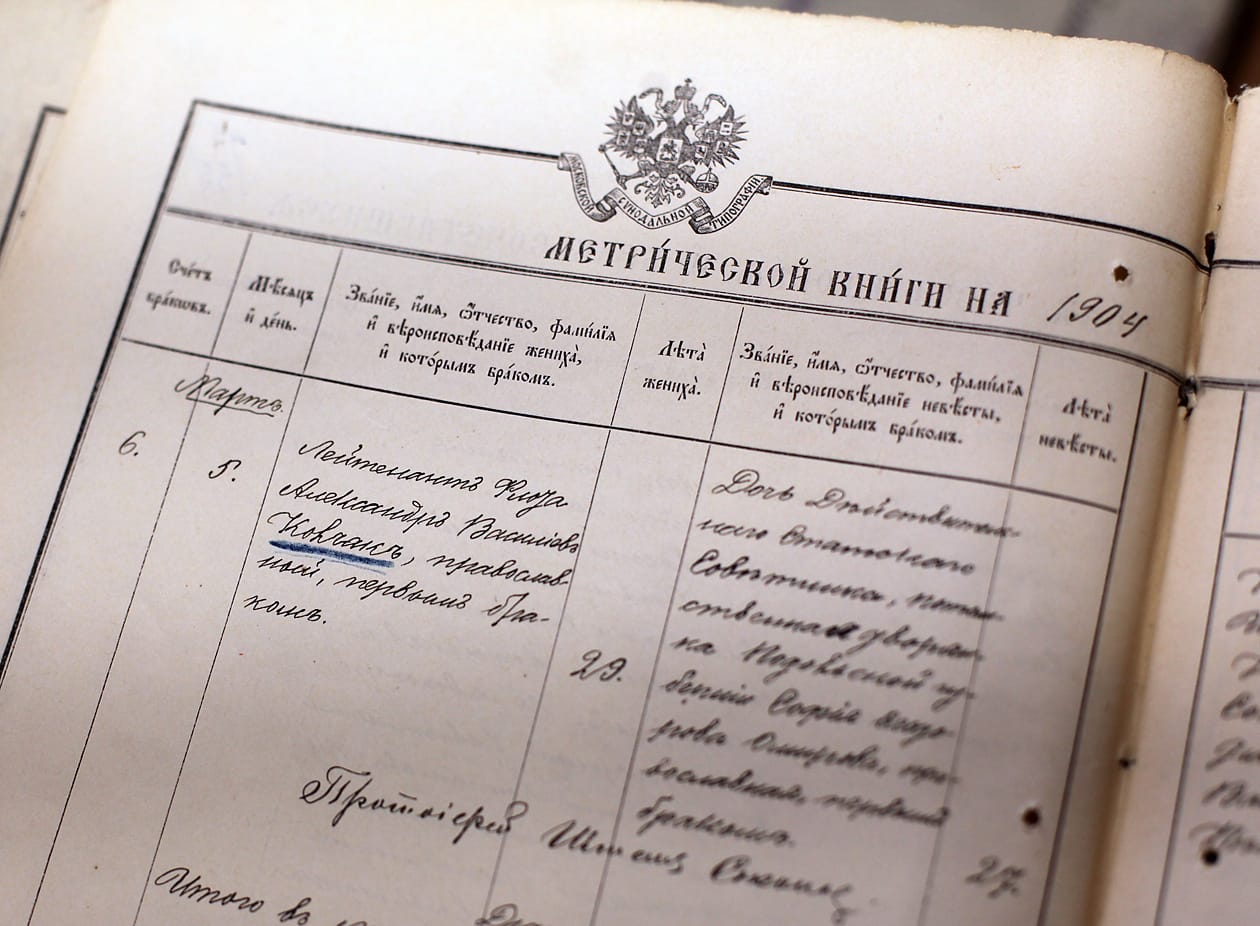 МОСКОВСКОЙ СѴНОДАЛЬНОЙ ТИПОГРАФІИ.
МЕТРИ́ЧЕСКОЙ КНИ́ГИ НА 1904
Сче́тъ
бра́ковъ.
Мѣ́сяцъ
и҆ де́нь.
Зва́нїе, и҆́мя, ѻ҆́тчество, фами́лїя
и҆ вѣроисповѣ́данїе жениха̀,
и҆ кото́рымъ бра́комъ.
Лѣта̀
жениха̀.
Зва́нїе, и҆́мя, ѻ҆́тчество, фами́лїя
и҆ вѣроисповѣ́данїе невѣ́сты,
и҆ кото́рымъ бра́комъ.
Лѣта̀
невѣ́сты.
Мартъ.
6.
5.
Лейтенантъ Флота
Александръ Василіевъ
Колчакъ, православ-
ной, первымъ бра-
комъ.
29.
Дочь Дѣйствитель-
наго Статскаго
Совѣтника, потом-
ственная дворян-
ка Подольской гу-
берніи Софія Ѳеодо-
рова Омирова, пра-
вославной, первымъ
бракомъ.
Протоіерей
Итого въ